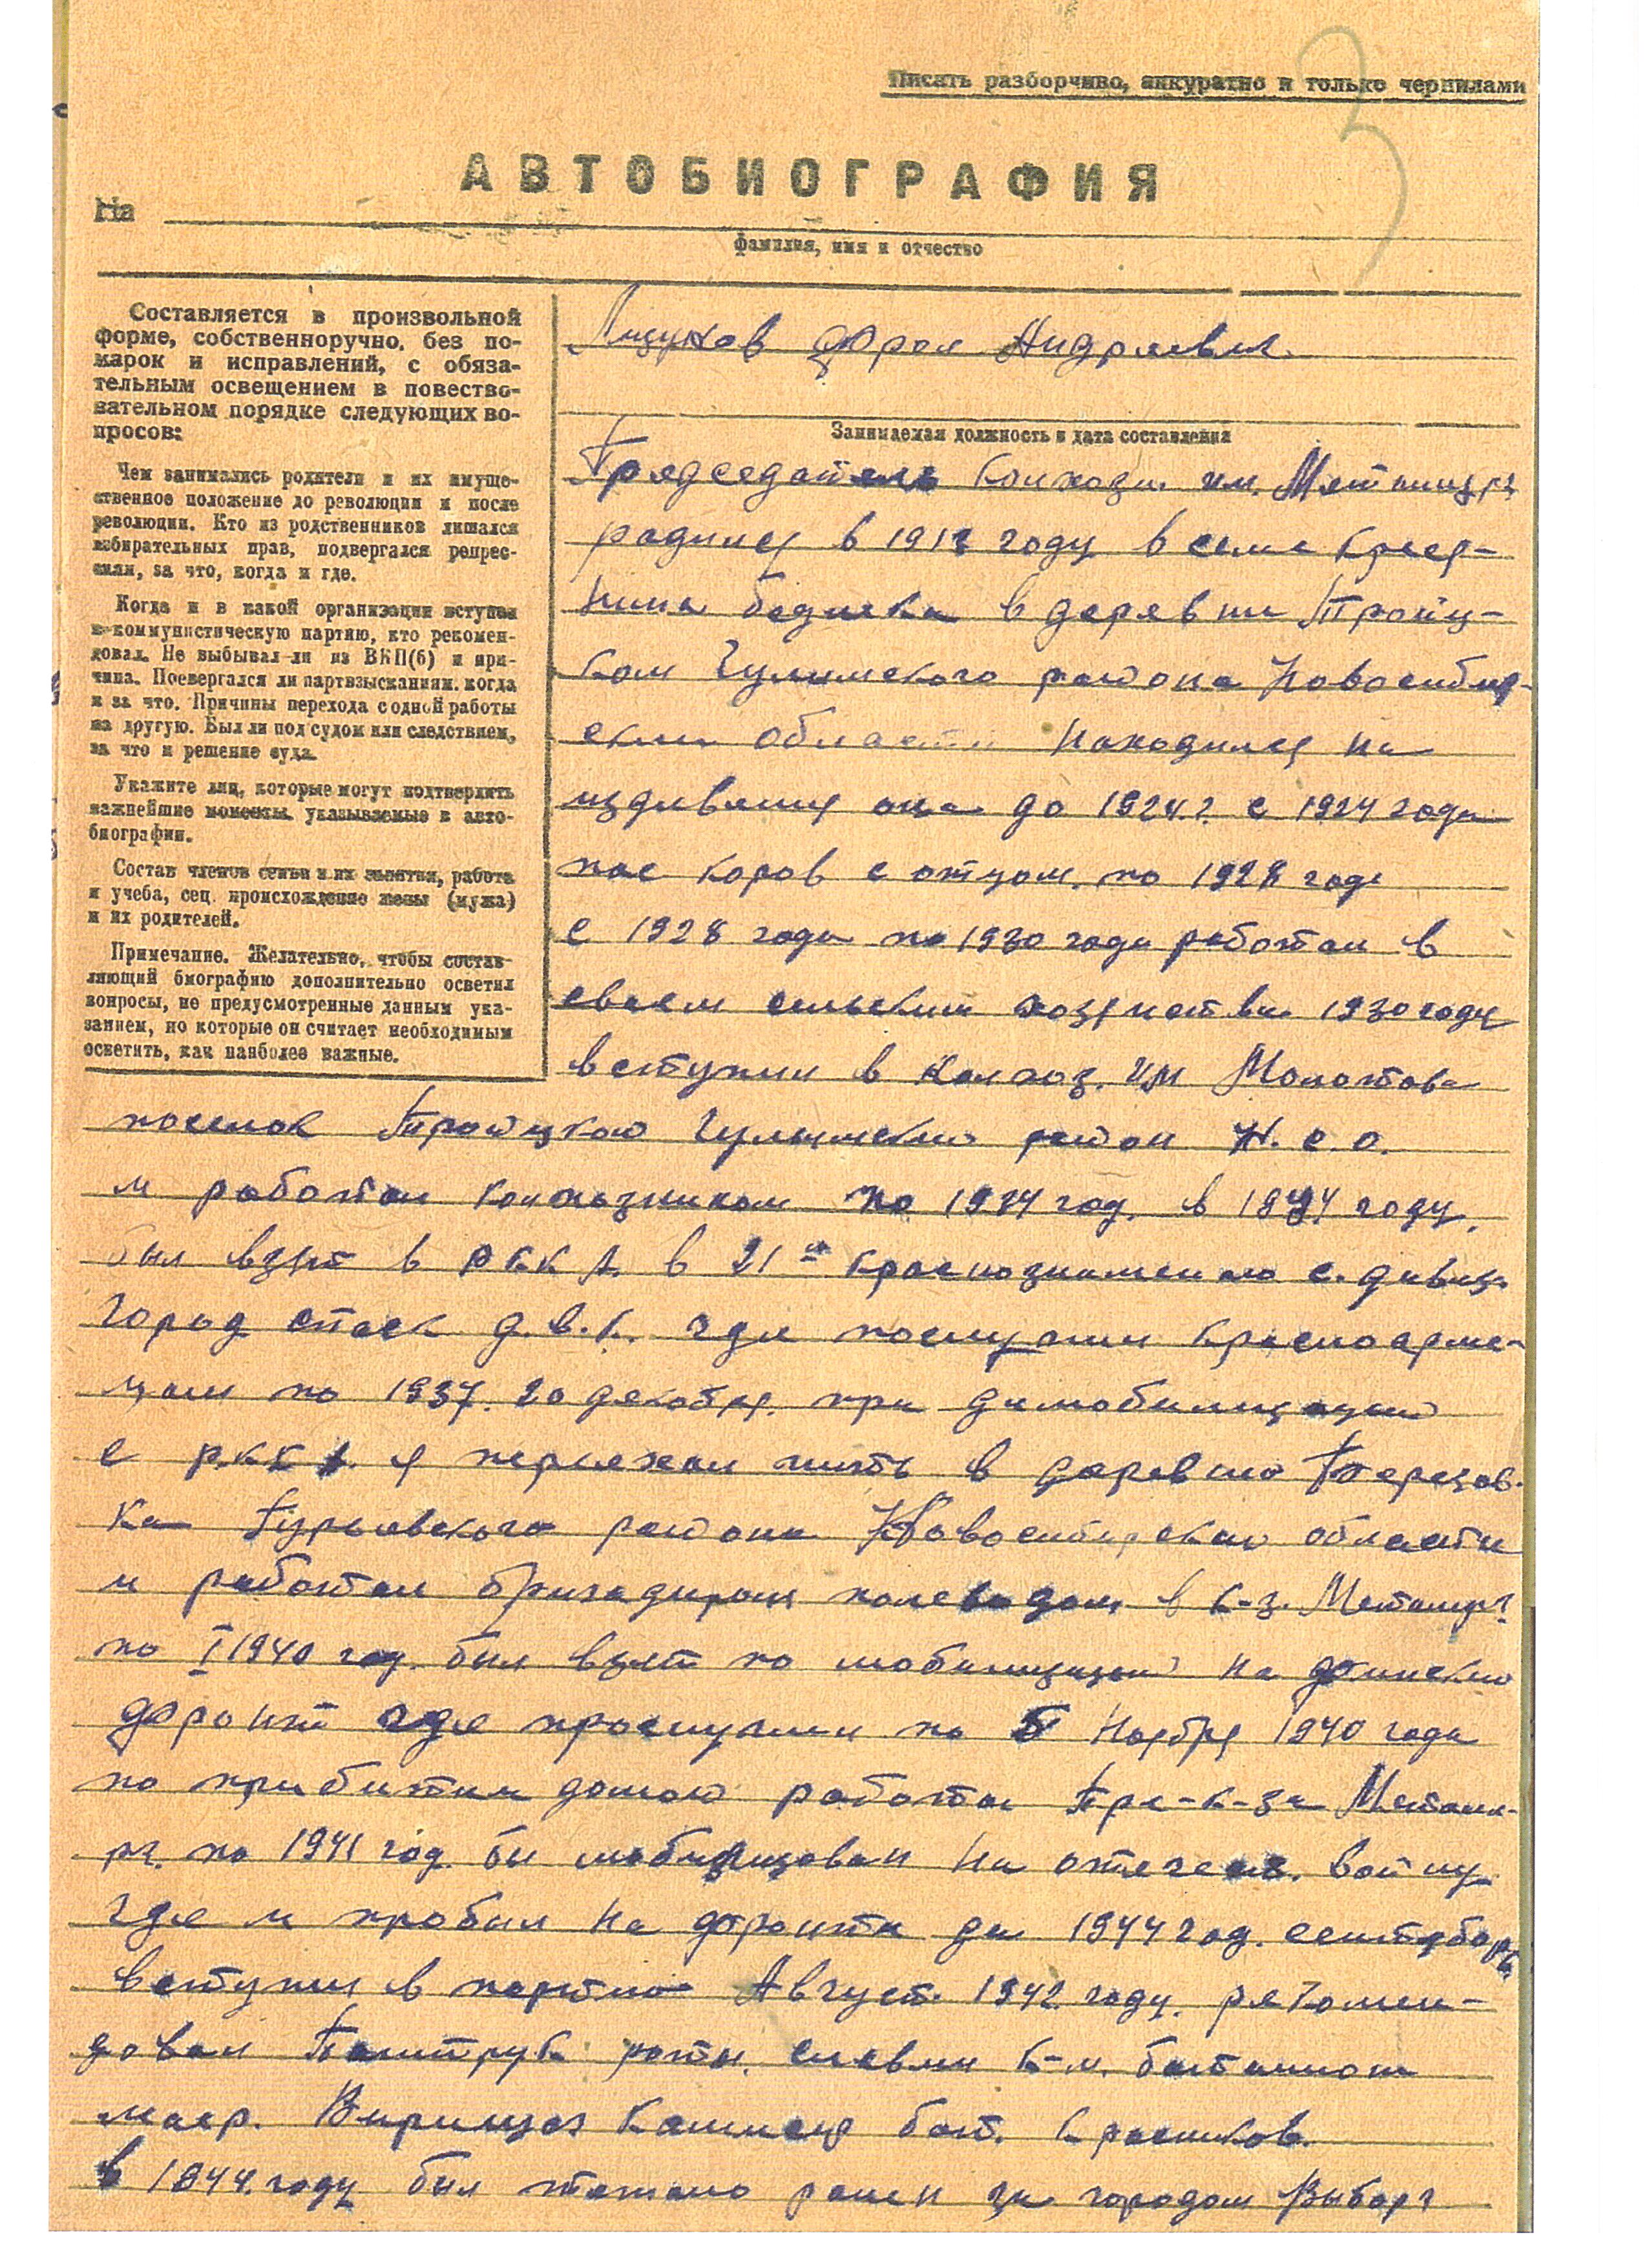 3
Писать разборчиво, аккуратно и только чернилами
АВТОБИОГРАФИЯ
На
фамилия, имя и отчество
Составляется в произвольной
форме, собственноручно, без по-
марок и исправлений, с обяза-
тельным освещением в повество-
вательном порядке следующих во-
просов:
Чем занимались родители и их имуще-
ственное положение до революции и после
революции. Кто из родственников лишался
избирательных прав, подвергался репрес-
сиям, за что, когда и где.
Когда и в какой организации вступил
в коммунистическую партию, кто рекомен-
довал. Не выбывал ли из ВКП(б) и при-
чина. Поевергался ли партвзысканиям, когда
и за что. Причины перехода с одной работы
на другую. Был ли под судом или следствием,
за что и решение суда.
Укажите лиц, которые могут подтвердить
важнейшие моменты, указываемые в авто-
биографии.
Состав членов семьи и их занятия, работа
и учеба, соц. происхождение жены (мужа)
и их родителей.
Примечание. Желательно, чтобы состав-
ляющий биографию дополнительно осветил
вопросы, не предусмотренные данным ука-
занием, но которые он считает необходимым
осветить, как наиболее важные.
Фрол Андреевич
Занимаемая должность и дата составления
Председатель Колхоза им. Металург
родился в 1912 году в семе Крест-
нина бедняка в деревни Тройц-
ком Чулымского района Новосибир-
ской области находился на
иждивении отца до 1924 г. с 1924 года
пас коров с отцом по 1928 года
с 1928 года по 1930 года работал в
своем сельским хозяйстве 1930 году
вступил в Колхоз. им Молотова
поселок Тройцкой Чулымский район Н.с.о.
и работал колхозником по 1934 год. в 1934 году.
был взят в РККА. в 21ю краснознаменую с. дивиз.
город спаск Д.в.К. где послужил красноарме-
йцем по 1937. 20 декабря. при демобилизации
с РККА. я переехал жить в деревню
Гурьевского района Новосибирской области
и работал бригадиром полеводом в к-з. Металург.
по I 1940 год. был взят по мобилизации на финский
фронт где прослужил по 5 ноября 1940 года
по прибытии домой работал Пре-к-за Металу-
рг. по 1941 год. был мобилизован на отечеств. войну
где и пробыл на фронте до 1944 год. сентябрь
вступил в партию Август. 1942 году. рекомен-
довал Политрук роты. к-м. батальона
маер. бат. Красиков.
в 1944 году был тяжело ранен за городом Выборг